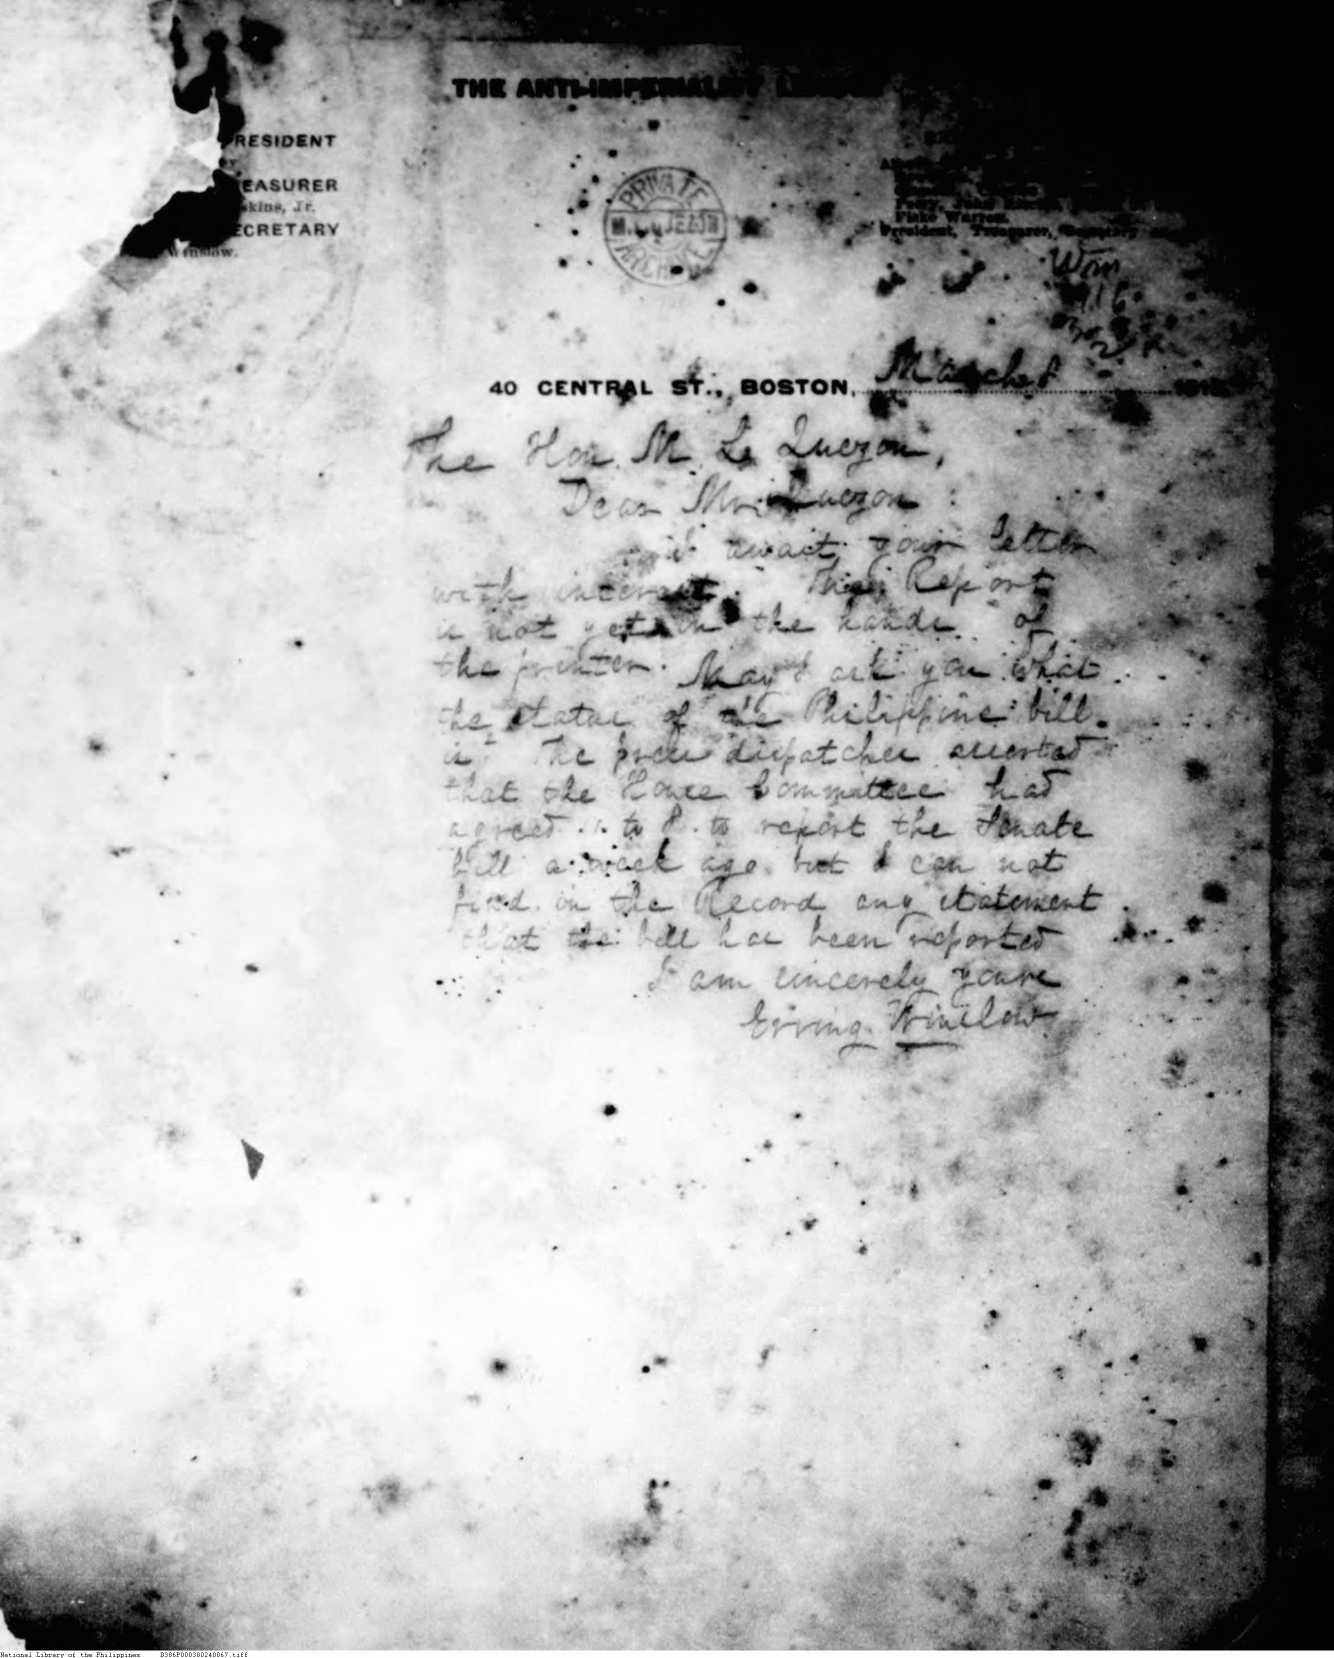 THE ANTI-IMPERIALIST LEAGUE
PRESIDENT
TREASURER
skins, Jr.
SECRETARY
Winslow.
PRIVATE
ARCHIVE
Fiske Warren.
President, Treasurer, Secretary
40 CENTRAL ST., BOSTON, March 8 191
The Hon. M. L. Quezon,
Dear Mr. Quezon:
I await your letter
with interest. The Report
is not yet in the hands of
the printer. May I ask you what
the status of the Philippine bill
is? The press dispatches asserted
that the House Committee had
agreed 11 to 8 to report the Senate
bill a week ago but I can not
find in the Record any statement
that the bill has been reported
I am sincerely yours
Erving Winslow
National Library of the Philippines B386P000380240067.tiff